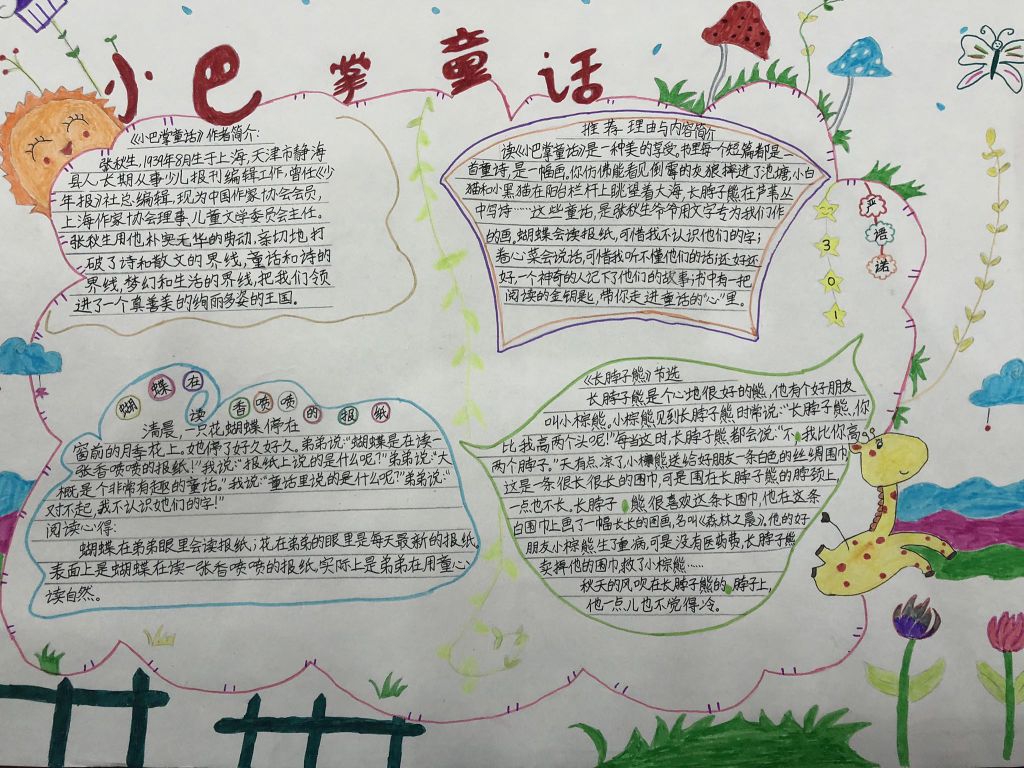 小巴掌童话
《小巴掌童话》作者简介：
张秋生，1939年8月生于上海，天津市静海
县人，长期从事少儿报刊编辑工作，曾任《少
年报》社总编辑，现为中国作家协会会员，
上海作家协会理事、儿童文学委员会主任。
张秋生用他朴实无华的劳动，亲切地打
破了诗和散文的界线，童话和诗的
界线，梦幻和生活的界线，把我们领
进了一个真善美的绚丽多姿的王国。
推荐理由与内容简介
读《小巴掌童话》是一种美的享受。书里每个短篇都是一
首童诗，是一幅画。你仿佛能看见倒霉的灰狼摔进了泡塘，小白
猫和小黑猫在阳台栏杆上眺望着大海，长脖子熊在芦苇丛
中写诗……这些童话，是张秋生爷爷用文字专为我们作
的画。蝴蝶会读报纸，可惜我不认识他们的字；
卷心菜会说话，可惜我听不懂他们的话；还好还
好一个神奇的人记下了他们的故事；书中有一把
阅读的金钥匙，带你走进童话的“心”里。
严语诺
301
蝴蝶在读香喷喷的报纸
清晨，一只花蝴蝶停在
窗前的月季花上。她停了好久好久。弟弟说：“蝴蝶是在读一
张香喷喷的报纸！”我说：“报纸上说的是什么呢？”弟弟说：“大
概，是个非常有趣的童话。”我说：“童话里说的是什么呢？”弟弟说：“
对不起，我不认识她们的字！”
阅读心得：
蝴蝶在弟弟眼里会读报纸；花在弟弟的眼里是每天最新的报纸，
表面上是蝴蝶在读一张香喷喷的报纸，实际上是弟弟在用童心
读自然。
《长脖子熊》节选
长脖子熊是个心地很好的熊，他有个好朋友
叫小棕熊。小棕熊见到长脖子熊时常说：“长脖子熊，你
比我高两个头呢！”每当这时，长脖子熊都会说：“不，我比你高
两个脖子。”天有点凉了，小棕熊送给好朋友一条白色的丝绸围巾，
这是一条很长很长的围巾，可是围在长脖子熊的脖颈上，
一点也不长。长脖子熊很喜欢这条长围巾，他在这条
白围巾上画了一幅长长的图画，名叫《森林之晨》。他的好
朋友小棕熊生了重病，可是没有医药费，长脖子熊
卖掉他的围巾救了小棕熊……
秋天的风吹在长脖子熊的脖子上，
他一点儿也不觉得冷。